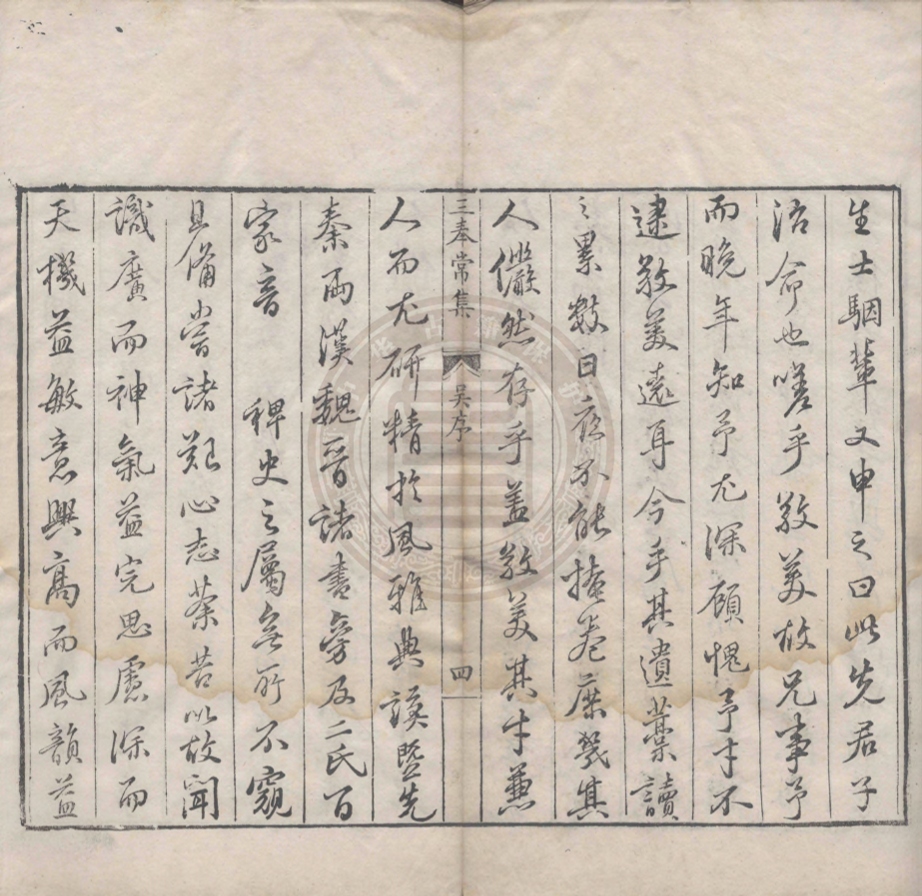 生士駰輩又申之曰此先君子
治命也嗟乎敬美故兄事予
而晚年知予尤深顧愧予才不
逮敬美遠耳今手其遺藁讀
之累數日夜不能掩卷庶幾其
人儼然存乎蓋敬美其才兼
三奉常集 吳序 四
人而尤研精於風雅典謨暨先
秦兩漢魏晉諸書旁及二氏百
家音 稗史之屬無所不窺
且備嘗諸艱心志荼苦以故聞
識廣而神氣益完思慮深而
天機益敏意興高而風韻益